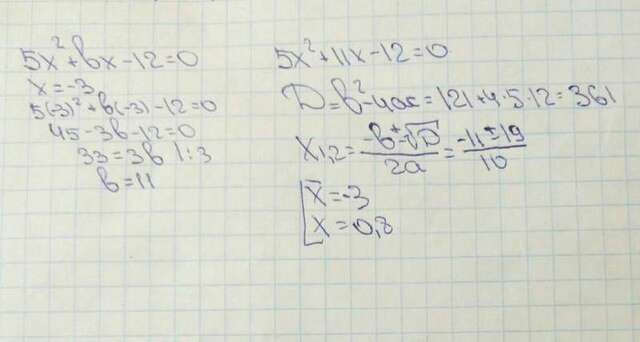 5x² + bx - 12 = 0
x = -3
5(-3)² + b(-3) - 12 = 0
45 - 3b - 12 = 0
33 = 3b | : 3
b = 11
5x² + 11x - 12 = 0
D = b² - 4ac = 121 + 4·5·12 = 361
x₁,₂ = (-b ± √D)/(2a) = (-11 ± 19)/10
[x = -3
x = 0,8